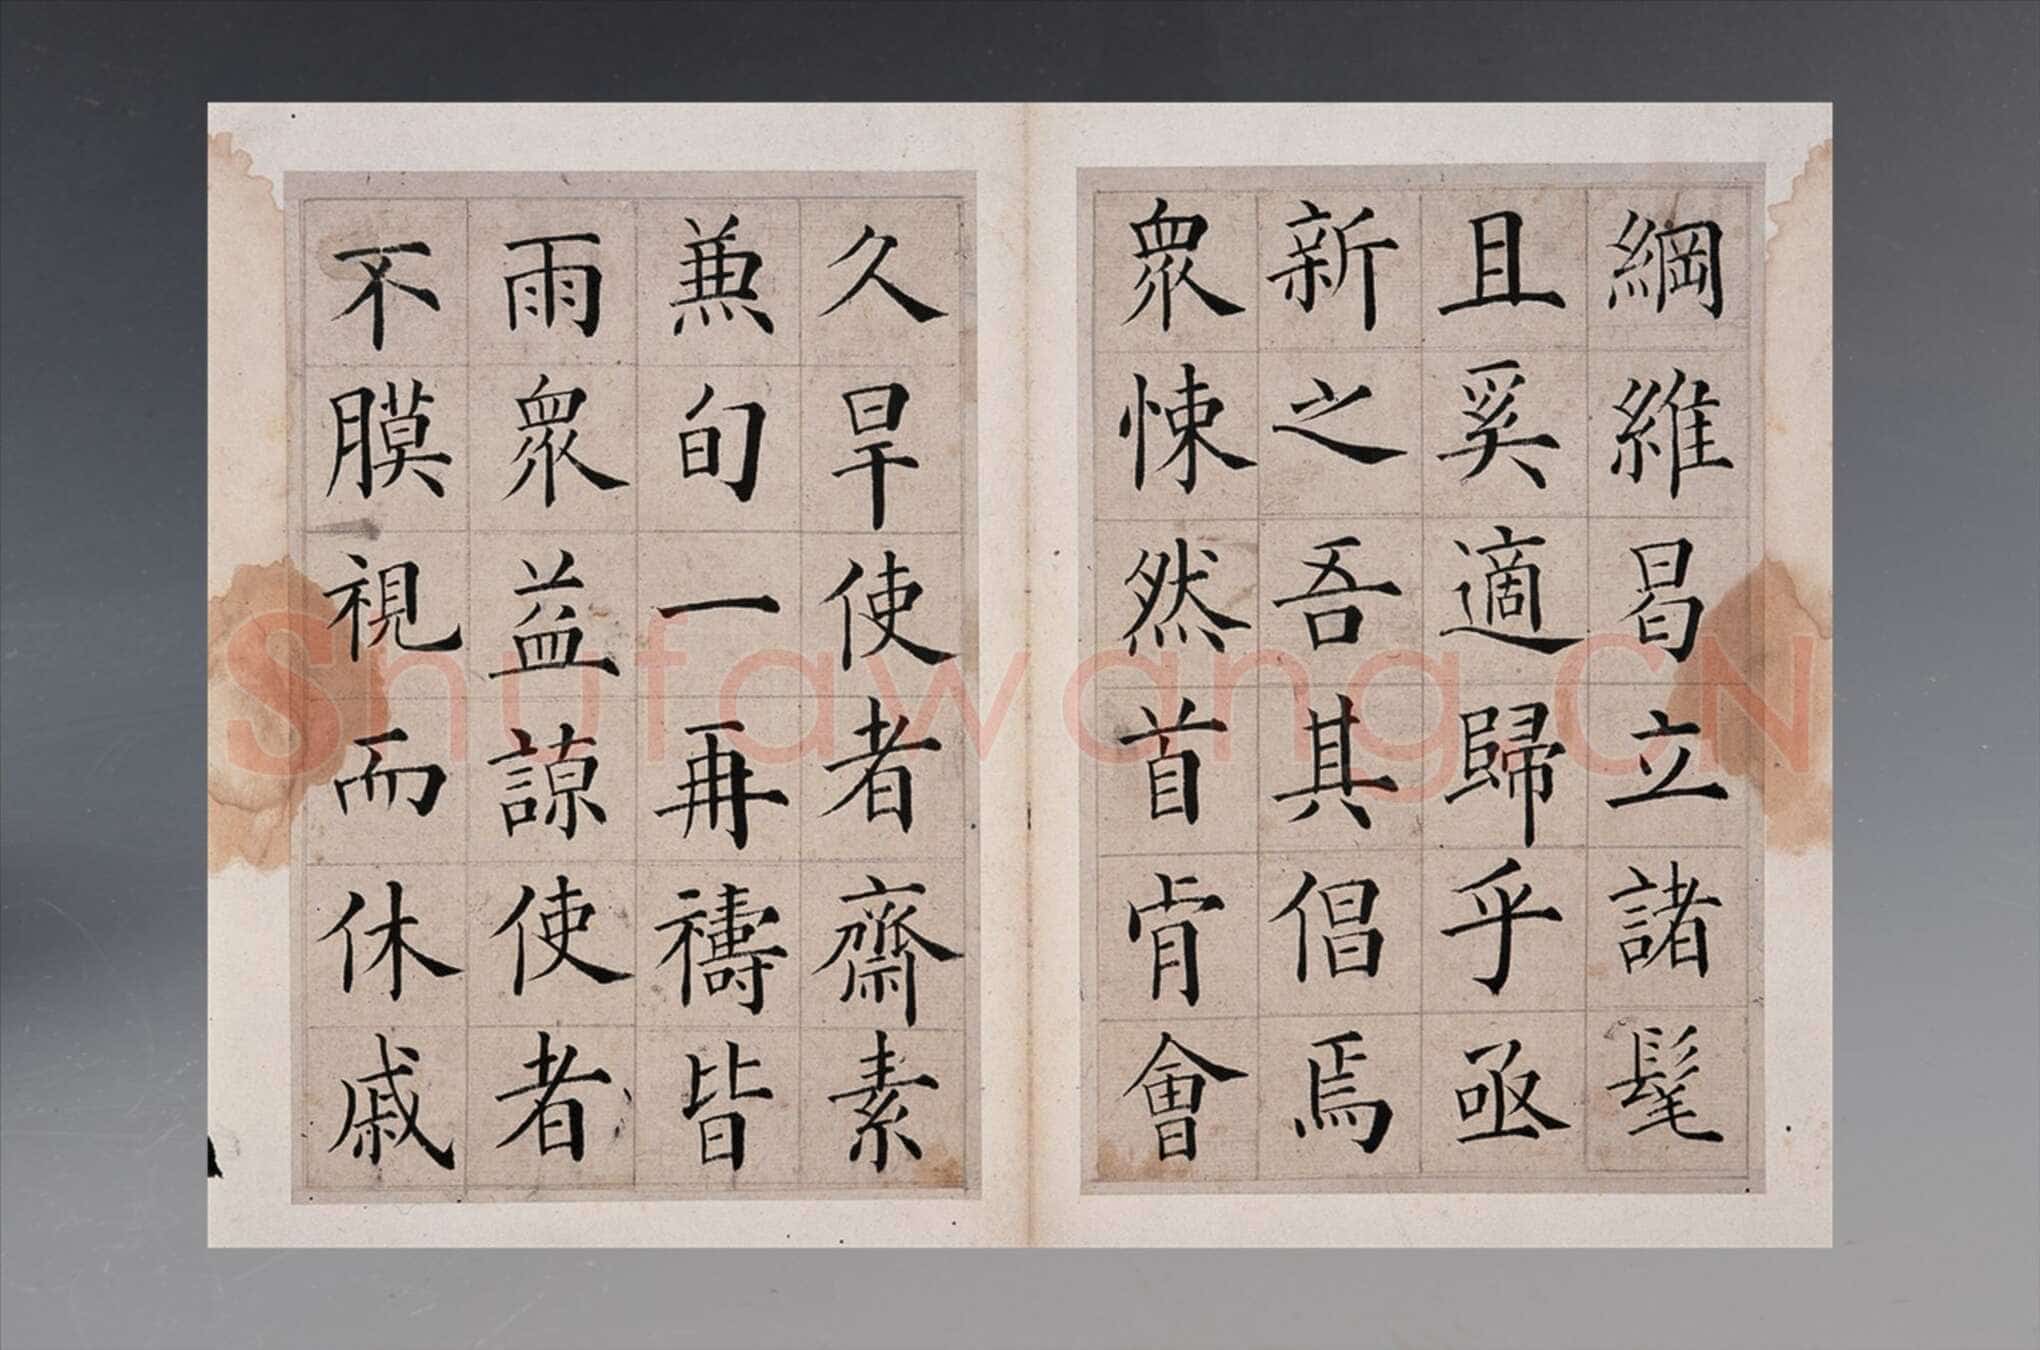 綱維曷立諸髦
且奚適歸乎亟
新之吾其倡焉
眾悚然首肯會
久旱使者齋素
兼旬一再禱皆
雨眾益諒使者
不膜視而休戚
Shufawang.CN